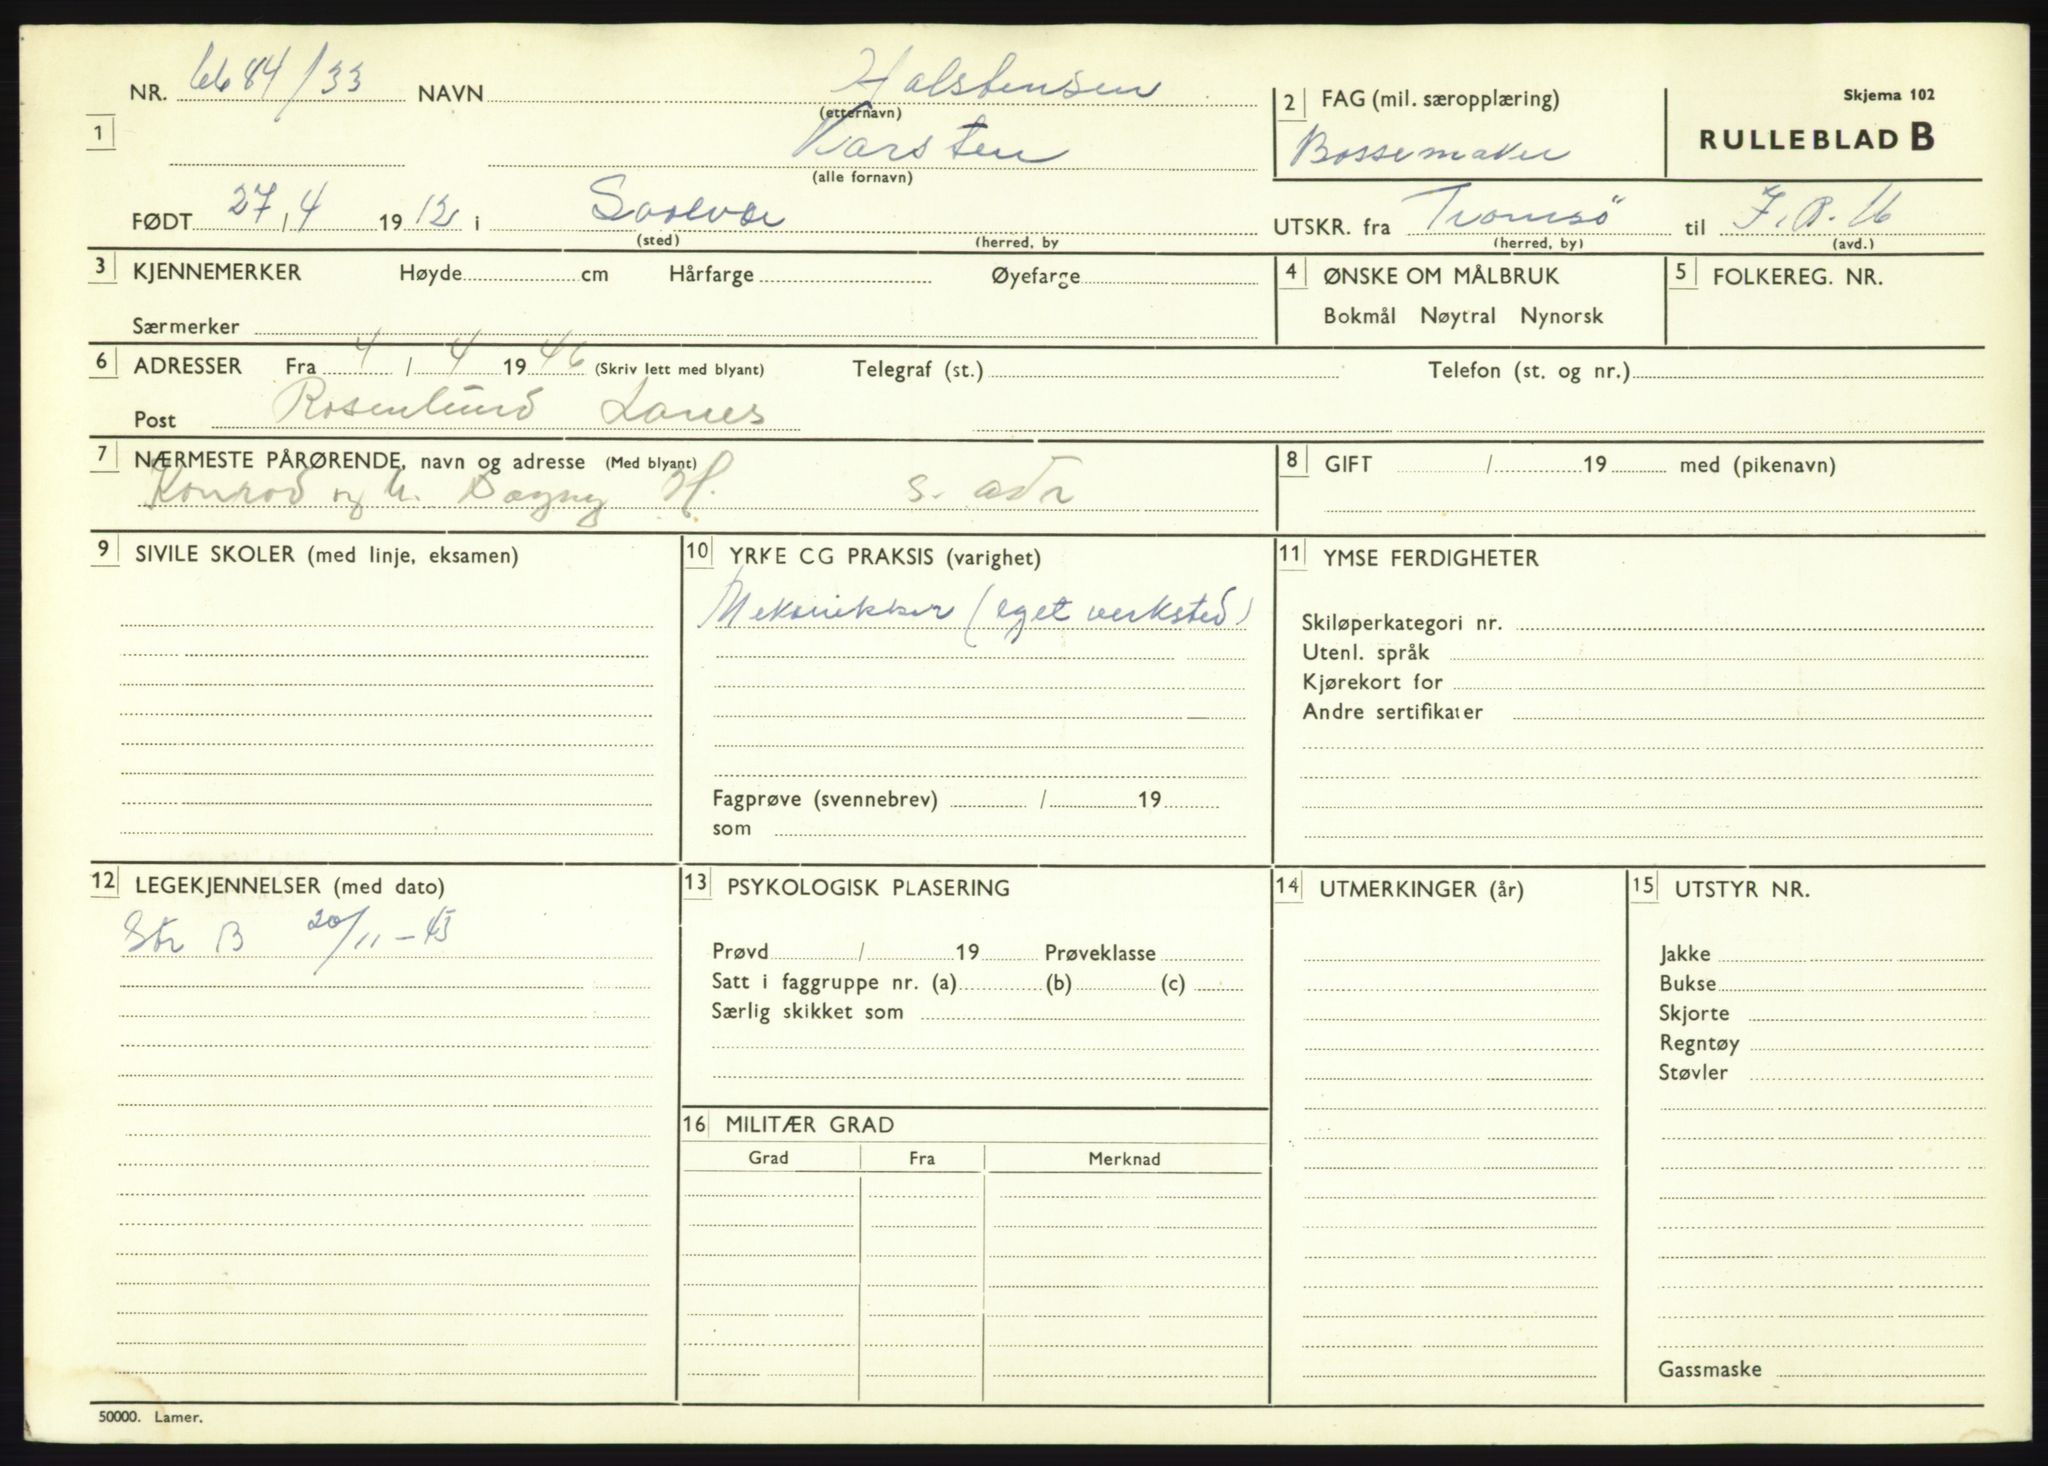 NR. 6684/33 NAVN Halstensen
(etternavn)
1 Karsten
(alle fornavn)
FØDT 27/4 1912 i
(sted) (herred, by
2 FAG (mil. særopplæring)
Bøssemaker
Skjema 102
RULLEBLAD B
UTSKR. fra Tromsö til I.R. 16
(herred, by) (avd.)
3 KJENNEMERKER Høyde cm Hårfarge Øyefarge
Særmerker
4 ØNSKE OM MÅLBRUK
Bokmål Nøytral Nynorsk
5 FOLKEREG. NR.
6 ADRESSER Fra 4/4 1946 (Skriv lett med blyant) Telegraf (st.) Telefon (st. og nr.)
Post Rosenlund Lanes
7 NÆRMESTE PÅRØRENDE, navn og adresse (Med blyant)
Konrad og h. Dagny H. s. adr
8 GIFT / 19 med (pikenavn)
9 SIVILE SKOLER (med linje, eksamen)
10 YRKE CG PRAKSIS (varighet)
Mekanikker (eget verksted)
Fagprøve (svennebrev) / 19
som
11 YMSE FERDIGHETER
Skiløperkategori nr.
Utenl. språk
Kjørekort for
Andre sertifikater
12 LEGEKJENNELSER (med dato)
Str B 20/11-45
13 PSYKOLOGISK PLASERING
Prøvd / 19 Prøveklasse
Satt i faggruppe nr. (a) (b) (c)
Særlig skikket som
14 UTMERKINGER (år)
15 UTSTYR NR.
Jakke
Bukse
Skjorte
Regntøy
Støvler
Gassmaske
16 MILITÆR GRAD
Grad Fra Merknad
50000. Lamer.